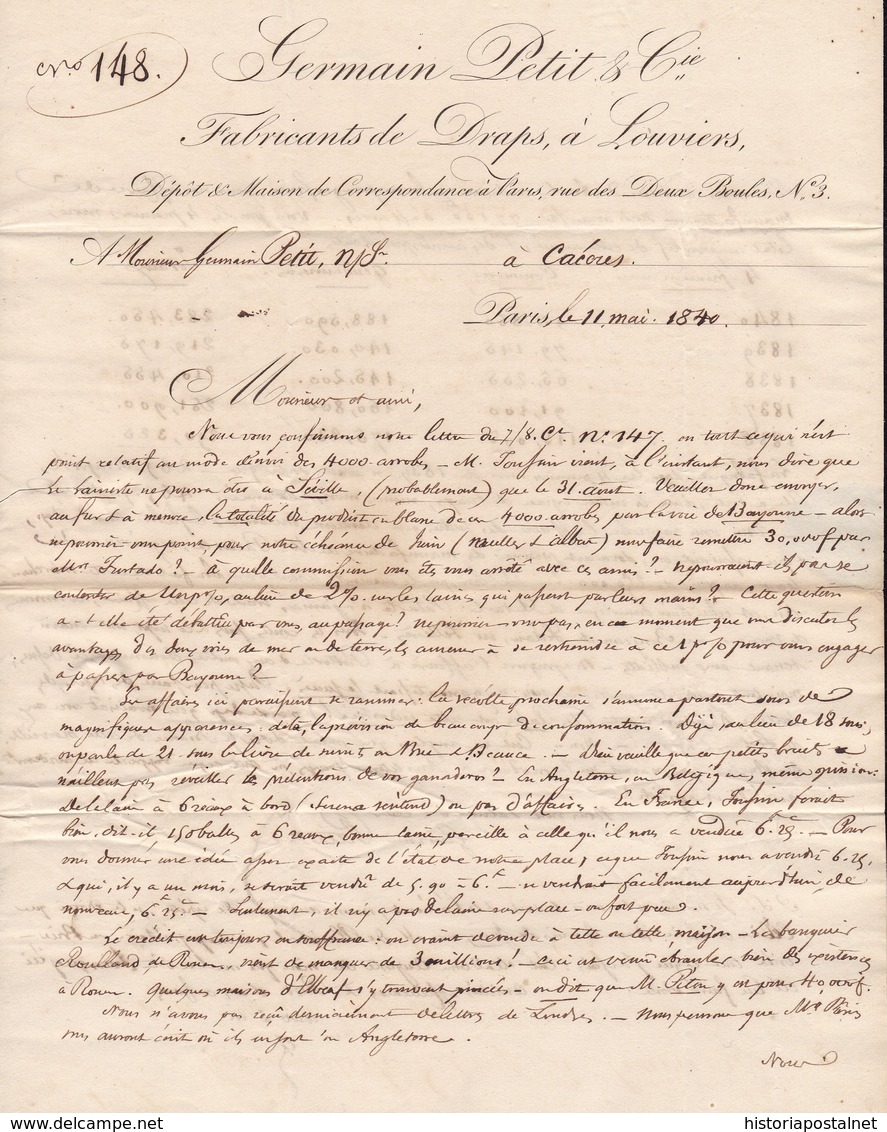 No 148.
Germain Petit & Cie
Fabricants de Draps, à Louviers,
Dépôt & Maison de Correspondance à Paris, rue des Deux Boules, No 3.
A Monsieur Germain Petit, n/Sr. à Cacéres.
Paris, le 11 mai 1840.
Monsieur et ami,
Nous vous confirmons notre lettre du 7/8. Ct. no. 147. en tout ce qui n'est
point relatif au mode d'envoi des 4000 arrobes – M. Toussin vient, à l'instant, nous dire que
le ne pourra être à Séville, (probablement) que le 31 août. Veuillez donc envoyer,
au fur & à mesure, la totalité du produit en blanc de ces 4000 arrobes par la voie de Bayonne – alors
ne pourriez-vous point, pour notre échéance de Juin nous faire remettre 30,000f par
Mrs Furtado? – à quelle commission vous êtes vous arrêté avec ces amis? – ne pourraient-ils pas se
contenter de Un p%, au lieu de 2% sur les laines qui passent par leurs mains? – Cette question
a-t-elle été débattue par vous, au passage? ne pourriez-vous pas, en ce moment que vous discutez les
avantages des deux voies de mer ou de terre, les amener à se restreindre à ce 1 p % pour vous engager
à passer par Bayonne? –
Les affaires ici paraissent se ranimer: la récolte prochaine s'annonce partout sous de
magnifiques apparences: de là, la prévision de beaucoup de consommation. Déjà, au lieu de 18 sous,
on parle de 21 sous la livre de suint en Brie & Beauce. – Dieu veuille que ces petits bruits
n'aillent pas réveiller les prétentions de vos ganaderos? – En Angleterre, en Belgique, même opinion:
de la laine à 6 reaux à bord ou pas d'affaires. En France, Toussin ferait
bien, dit-il 150 balles à 6 reaux, bonne laine, pareille à celle qu'il nous a vendue 6.25. – Pour
vous donner une idée assez exacte de l'état de notre place, ce que Toussin nous a vendu 6.25,
& qui, il y a un mois, se serait vendu de 5.90 à 6f – se vendrait facilement aujourd'hui, de
nouveau, 6f 25c – Seulement, il n'y a pas de laine sur place – ou fort peu.
Le crédit est toujours en souffrance: on craint de vendre à telle ou telle maison – Le banquier
Roulland de Rouen, vient de manquer de 3 millions! – ceci est venu ébranler bien des existences
à Rouen. Quelques maisons d'Elbeuf s'y trouvent pincées – on dit que M. Piton y est pour 40,000f.
Nous n'avons pas reçu dernièrement de lettres de Londres. – Nous pensons que Mrs
vous auront écrit où ils en sont en Angleterre.
Nous
historiapostalnet